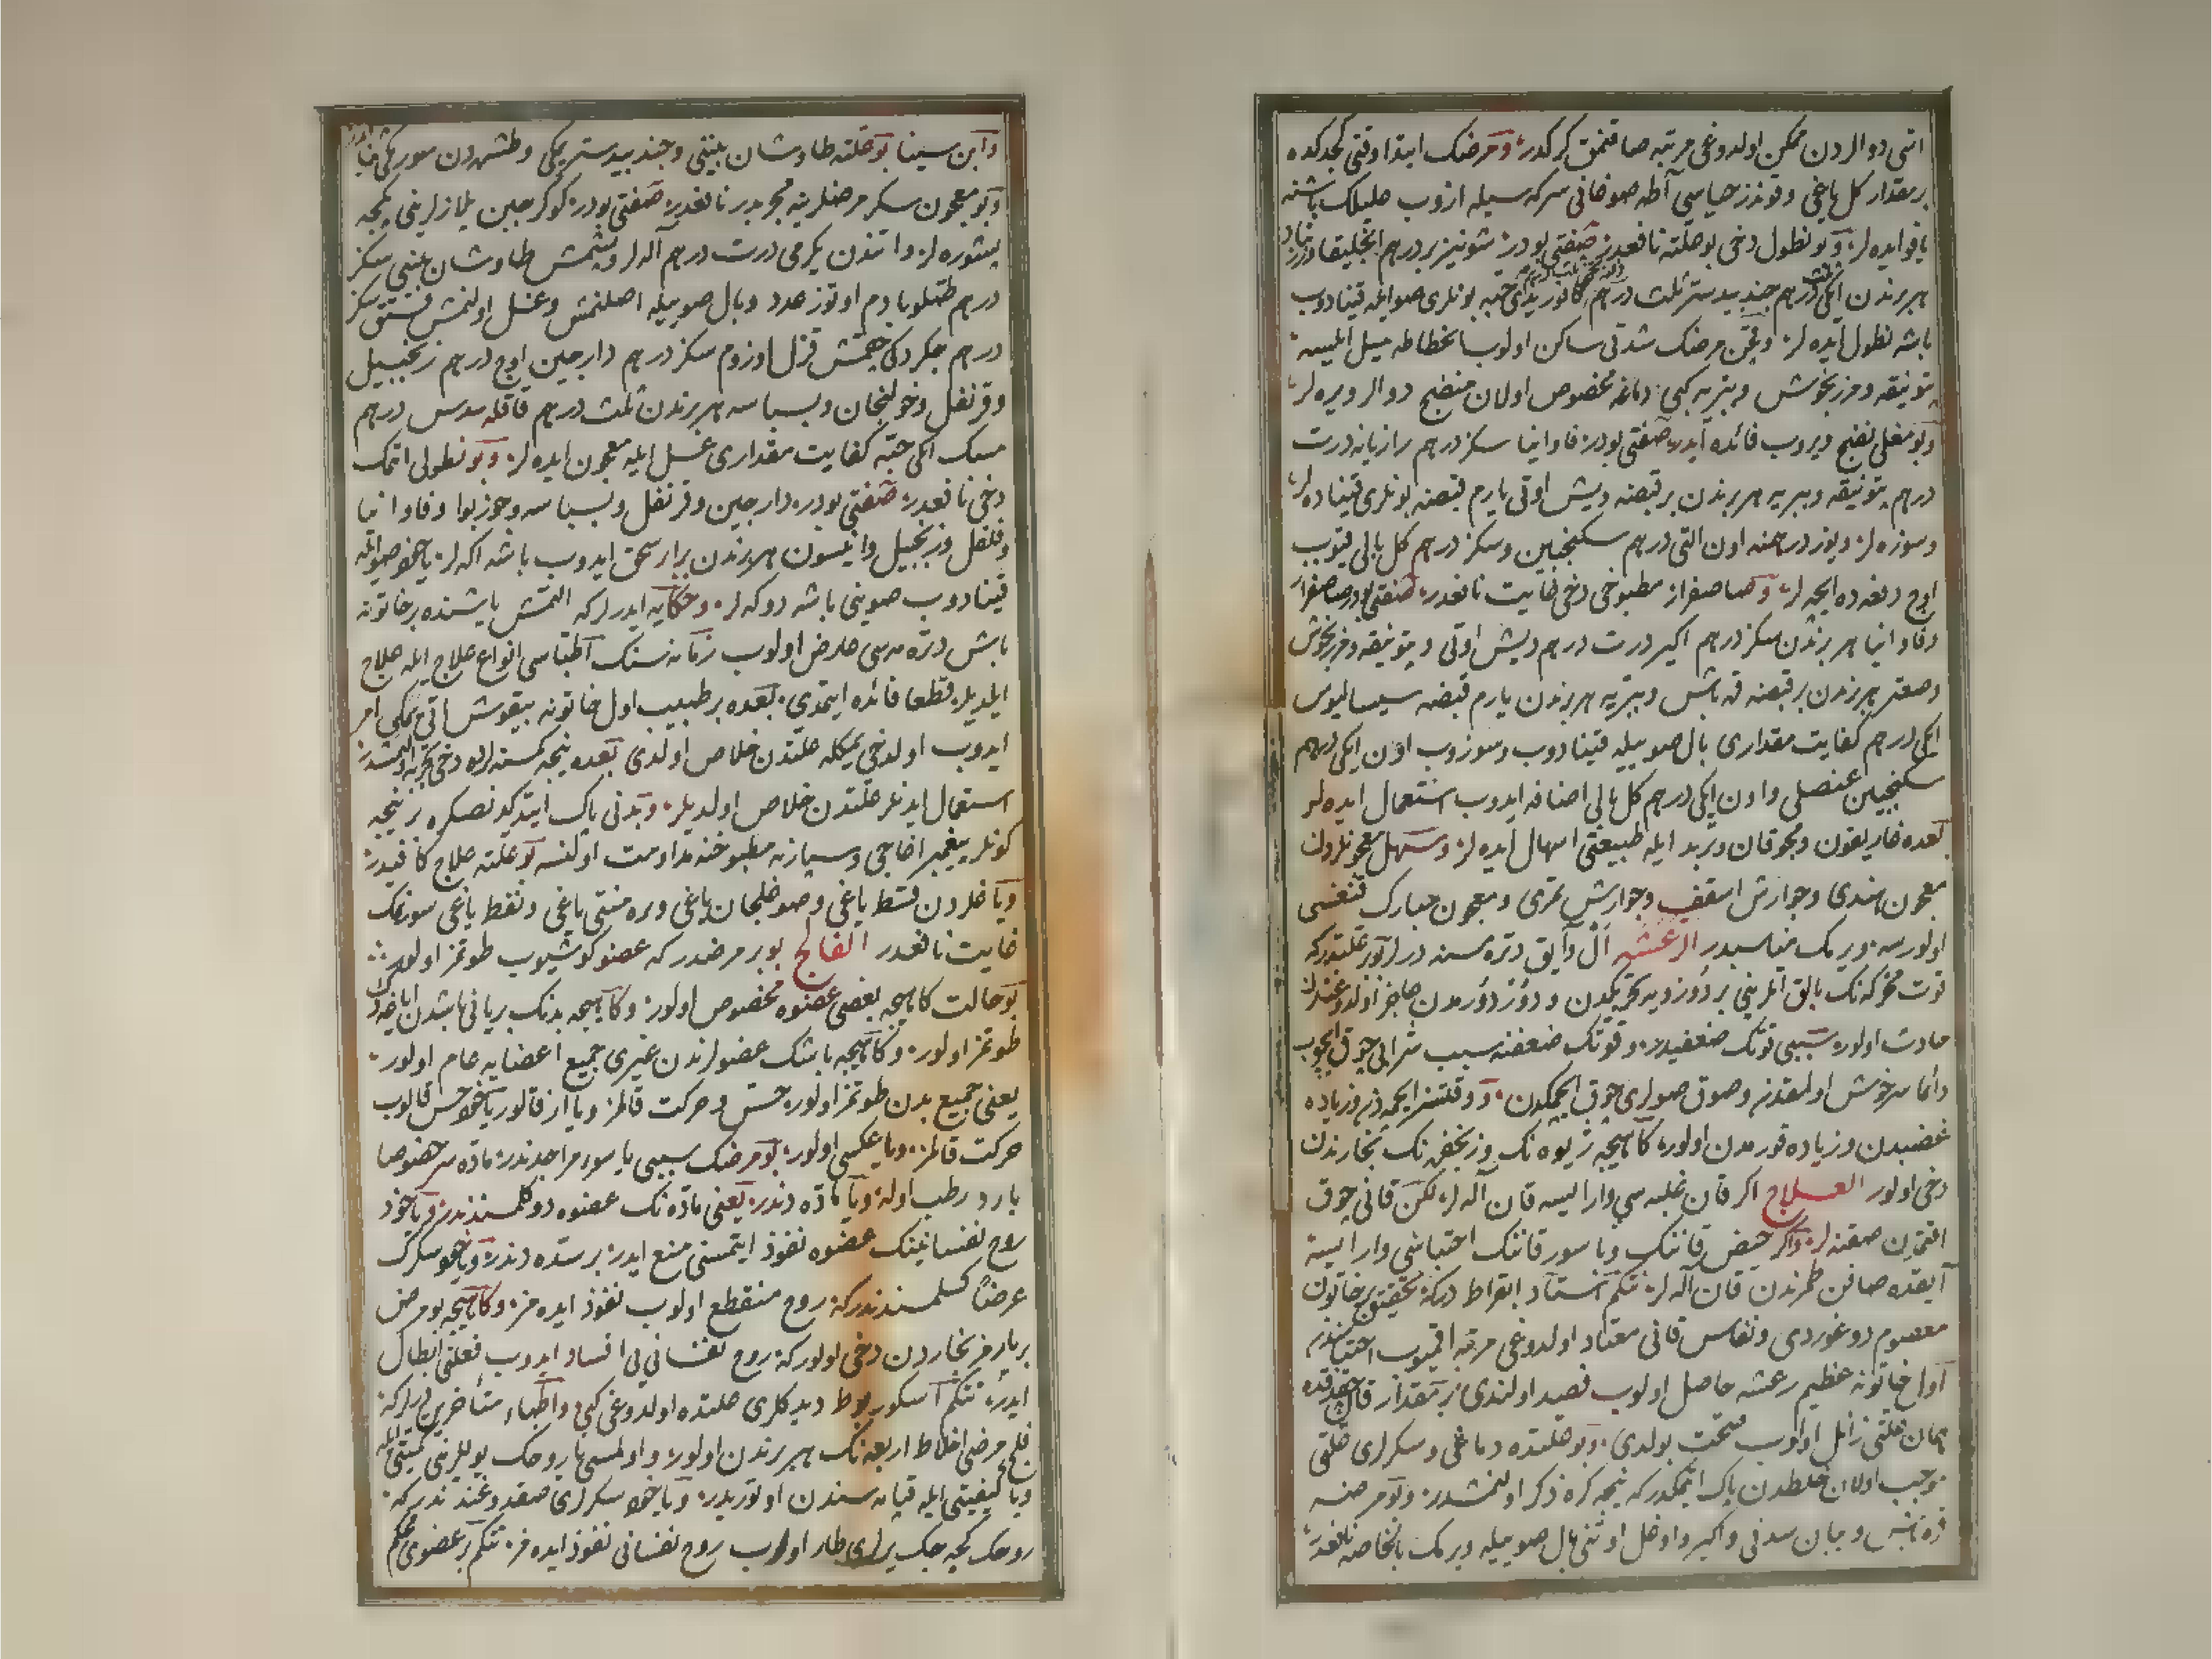 اتی دوالردن ممکن اولدوغی مرتبه صاقنمق کرکدر ومرضک ابتدا وقتی کجدکده
برمقدار کل یاغی وقوندز حیاسی آطه صوغانی سرکه سیله ازوب علیلک باشنه
یاقو ایده لر وبو نطول دخی بو علته نافعدر صفتی بودر شونیز بر درهم
هر برندن ایکی درهم جند بیدستر ثلث درهم بونلری صو ایله قینادوب
باشه نطول ایده لر وقچن مرضک شدتی ساکن اولوب انحطاطه میل ایلیسه
ومرزنخوش وببریه کبی دماغه مخصوص اولان منضج دوالر ویره لر
وبو مغلی نضج ویروب فائده ایدر صفتی بودر فاوانیا سکز درهم رازیانه درت
درهم وببریه هر برندن بر قبضه ویش اوتی یارم قبضه بونلری قیناده لر
وسوزه لر ویوز درهمنه اون التی درهم سکنجبین وسکز درهم کل بالی قیوب
اوچ دفعه ده ایچه لر وصاصفراز مطبوخی دخی غایت نافعدر صفتی بودر
وفاوانیا هر برندن سکز درهم اکیر درت درهم ویش اوتی ومرزنخوش
وصعتر هر برندن بر قبضه وببریه هر برندن یارم قبضه سیسالیوس
ایکی درهم کفایت مقداری بال صوییله قینادوب وسوزوب اون ایکی درهم
سکنجبین عنصلی واون ایکی درهم کل بالی اضافه ایدوب استعمال ایده لر
بعده غاریقون ومحروقان وتربد ایله طبیعتی اسهال ایده لر ومسهل معجونلردن
معجون هندی وجوارش اسقف وجوارش تمری ومعجون مبارک قنغسی
اولورسه ویرمک مناسبدر الرعشه ال وایق دتره مسنه درلر بو بر علتدرکه
قوت محرکه نک
حادث اولور سببی قوتک ضعفیدر وقوتک ضعفنه سبب شرابی چوق ایچوب
دائما سرخوش اولمقدن وصوق صولری چوق ایچمکدن ووقتسز
غضبدن وزیاده قورمدن اولور کاهیجه ژیوه نک وزنجفر نک بخارندن
دخی اولور العلاج اکر قان غلبه سی وار ایسه قان آله لر لکن قانی چوق
المقدن صقنه لر واکر حیض قاننک ویاسور قاننک احتباسی وار ایسه
آیقده صافن طمرندن قان آله لر نتکم استاد ابقراط درکه بر خاتون
معصوم دوغوردی ونفاس قانی معتاد اولدوغی مرتبه اقمیوب
اول خاتونه عظیم رعشه حاصل اولوب فصد اولندی بر مقدار قان
همان علتی زائل اولوب صحت بولدی وبو علتده دماغی وسکرلری علتی
موجب اولان خلطدن پاک اتمکدر که نیجه کره ذکر اولنمشدر وبو مرضه
وبیان سدنی واکیر وداخل اوتنی بال صوییله ویرمک بالخاصه نافعدر
وابن سینا بو علته طاوشان بیننی وجند بیدستر یمکی
وبو معجون سکر مرضلرینه مجربدر نافعدر صفتی بودر کوکرجین یلازلرینی
پیشوره لر واتندن یکرمی درت درهم آله لر وپشمش طاوشان بیننی سکز
درهم طتلو بادم اوتوز عدد وبال صوییله اصلنمش وغسل اولنمش فستق سکز
درهم چکردکی چقمش قزل اوزوم سکز درهم دارچین اوچ درهم زنجبیل
وقرنفل وخولنجان وبسباسه هر برندن ثلث درهم قاقله سدس درهم
مسک ایکی حبه کفایت مقداری عسل ایله معجون ایده لر وبو نطولی اتمک
دخی نافعدر صفتی بودر دارچین وقرنفل وبسباسه وجوزبوا وفاوانیا
وفلفل وزنجبیل وانیسون هر برندن برابر سحق ایدوب باشه اکه لر
قینادوب صوینی باشه دوکه لر وحکایه ایدرلرکه التمش یاشنده بر خاتونه
باش دتره مسی عارض اولوب زمانه سنک اطباسی انواع علاج ایله علاج
ایلدیلر قطعا فائده ایتمدی بعده بر طبیب اول خاتونه بیقوش اتی یمکی امر
ایدوب اول دخی یمکله علتدن خلاص اولدی بعده نیجه کسنه لر
استعمال ایدنلر علتدن خلاص اولدیلر وبدنی پاک ایتدیکدنصکره بر نیجه
کونلر پیغمبر اغاجی وسپارنه مطبوخنه مداومت اولنسه بو علته علاج کافیدر
ویاغلردن قسط یاغی وصوغلجان یاغی وبره منتی یاغی ونفط یاغی سورنمک
غایت نافعدر الفالج بو بر مرضدر که عضو کوشیوب طوتمز اولور
بو حالت کاهیجه بعضی عضوه مخصوص اولور وکاهیجه بدنک بر یانی باشدن ایاغه دک
طوتمز اولور وکاهیجه باشک عضولرندن غیری جمیع اعضایه عام اولور
یعنی جمیع بدن طوتمز اولور حس وحرکت قالمز ویا از قالور یاخود حس قالوب
حرکت قالمز ویا عکسی اولور بو مرضک سببی یا سوء مزاجدندر ماده سز خصوصا
بارد رطب اوله ویا ماده دندر یعنی ماده نک عضوه دوکلمسندندر ویاخود
روح نفسانینک عضوه نفوذ ایتمسنی منع ایدر بر سده دندر ویاخود سکرک
عرضا کسلمسندندرکه روح منقطع اولوب نفوذ ایده مز وکاهیجه بو مرض
بر یارمز بخاردن دخی اولورکه روح نفسانی یی افساد ایدوب فعلنی ابطال
ایدر نتکم اسکوربوط دیدکلری علتده اولدوغی کبی واطباء متأخرین درلرکه
فلج مرضی اخلاط اربعه نک هر برندن اولور واولمسی یا روحک یوللرینی کمیتی ایله
ویا کیفیتی ایله قپامسندن اوتوریدر ویاخود سکرلری صقدوغندندرکه
روحک کچه جک یرلری طار اولوب روح نفسانی نفوذ ایده مز نتکم بر عضوی محکم